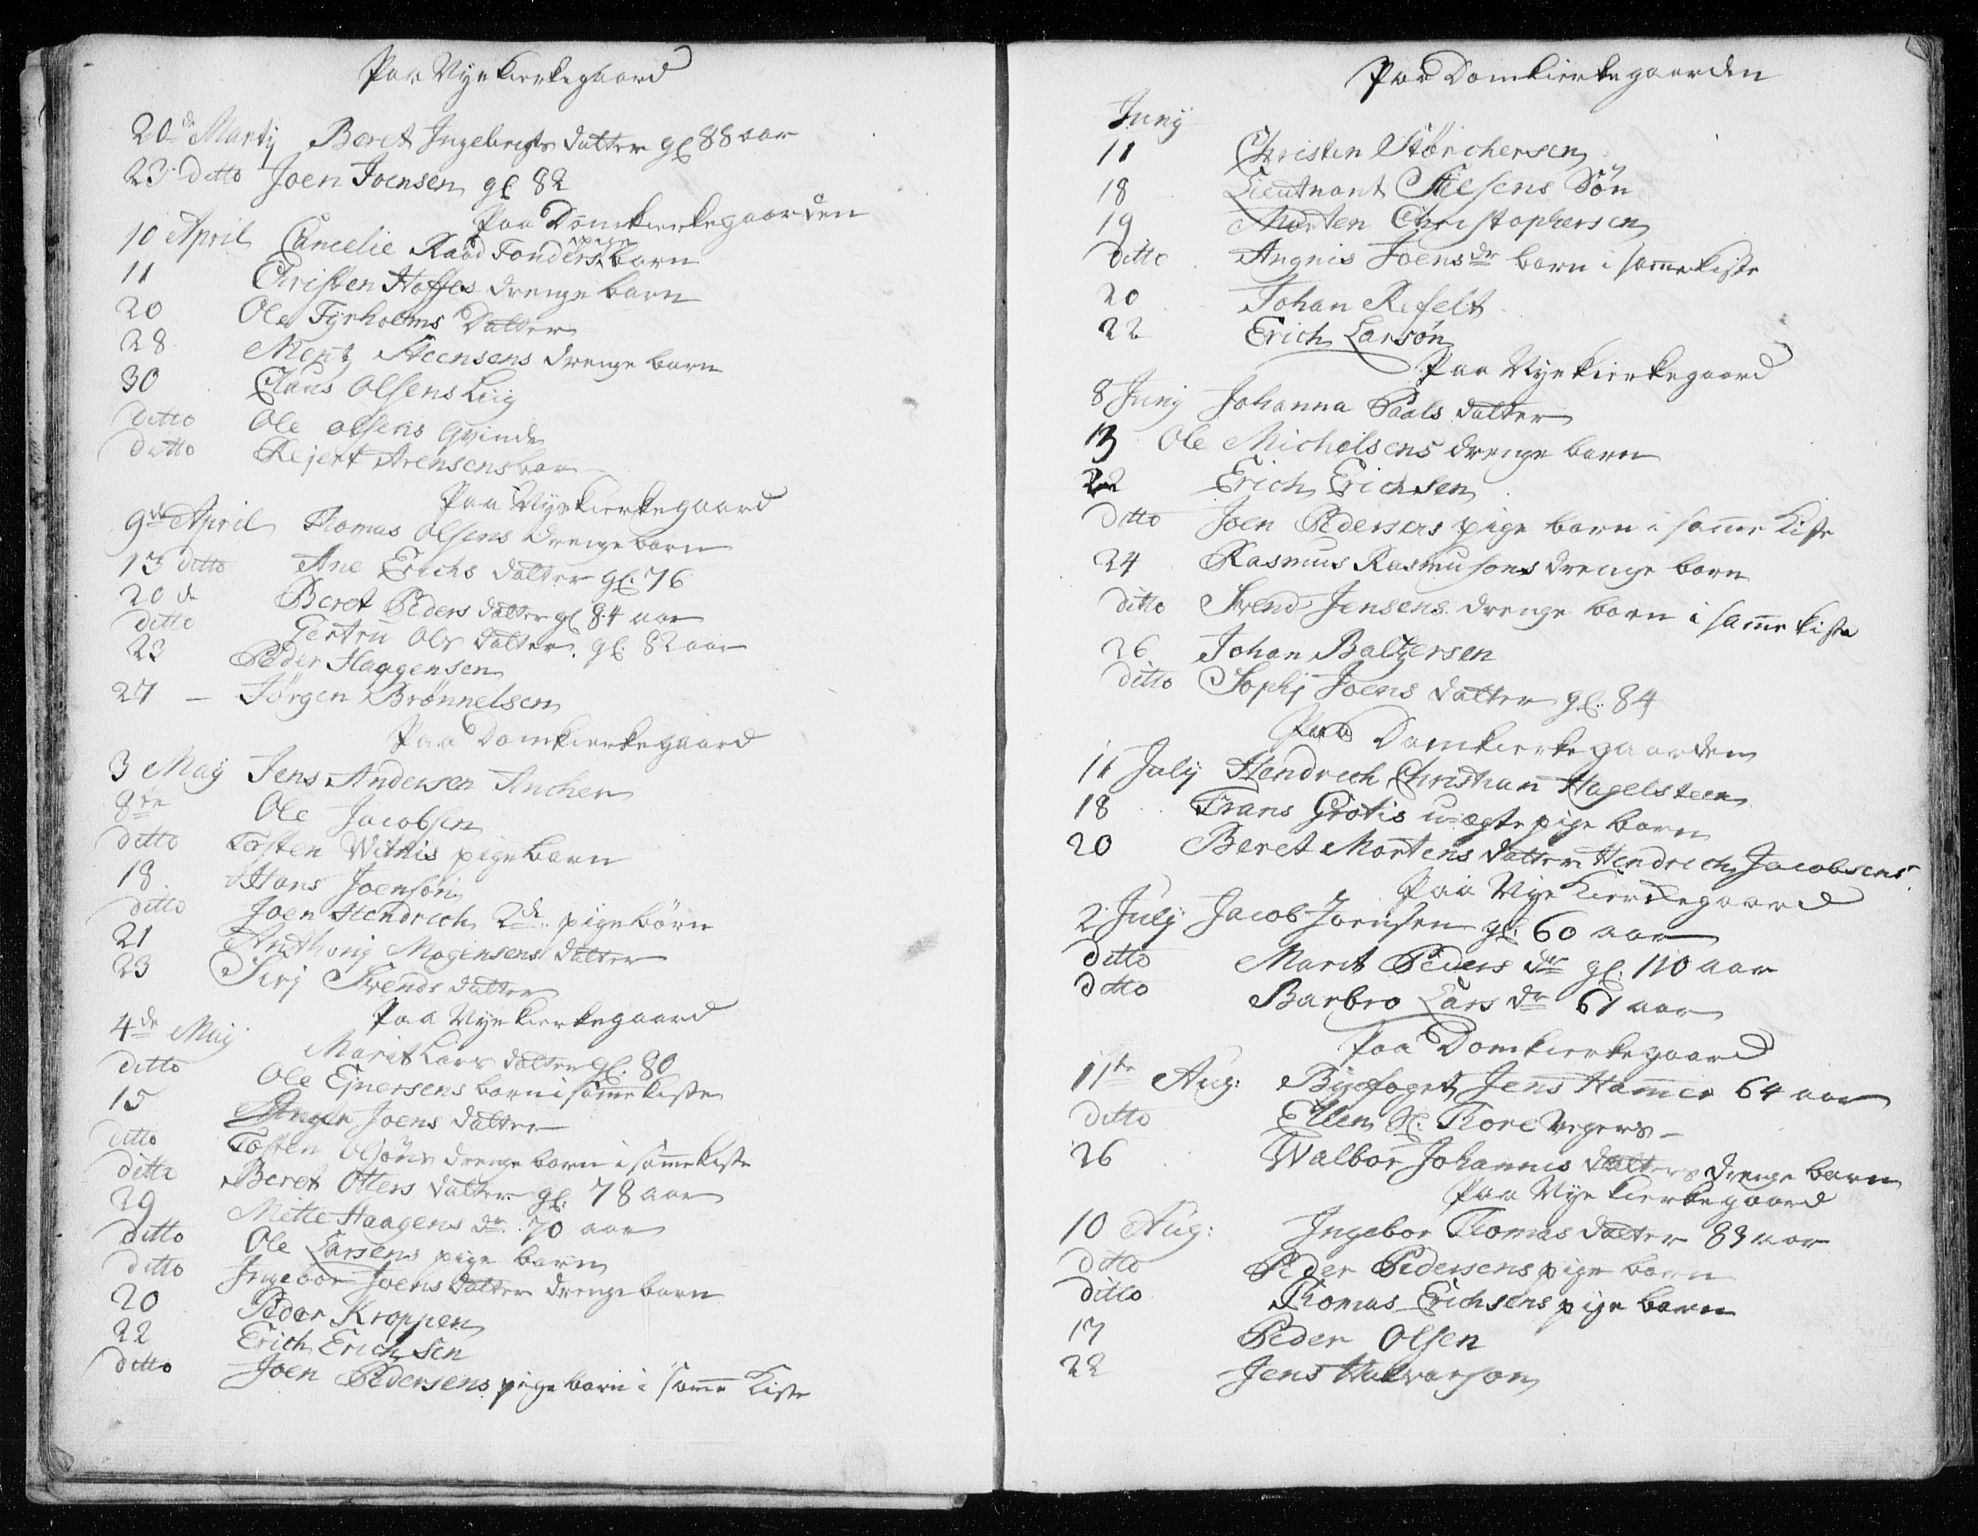 Paa Nye Kierkegaard
20de Martij Beret Ingebrigts datter gl 88 aar
23 ditto Joen Joensen gl 82
Paa Domkierkegaarden
10 April Cancelie Raad Fonders pige barn
11 Christen Hoffes drenge barn
20 Ole Fyrholms Datter
28 Mentz Steensens drenge barn
30 Claus Olsens Liig
ditto Ole Olsens Qvinde
ditto Rejert Arensens barn
Paa Nye Kierkegaard
9de April Thomas Olsens Drenge barn
13 ditto Ane Erichs datter gl. 76
20 de Beret Peders datter gl 84 aar
ditto Gertru Ols datter gl. 82 aar
23 Peder Haagensen
27 — Jørgen Brønnelsen
Paa Domkierkegaard
3 Maij Jens Andersen Ancher
8te Ole Jacobsen
ditto Tosten Withis pige barn
18 Hans Joensøn
ditto Joen Hendrich 2de pige børn
21 Anthonij Mogensens datter
23 Sirj Svends datter
Paa Nye Kierkegaard
4de Maij Marit Lars datter gl. 80
ditto Ole Ejnersens barn i samme kiste
15 Inger Joens datter
ditto Tosten Olsøns drenge barn i samme kiste
ditto Beret Otters datter gl. 78 aar
29 Mette Haagens dr. 70 aar
ditto Ole Larsens pige barn
ditto Ingebor Joens datter drenge barn
20 Peder Kroppen
22 Erich Erichsen
ditto Joen Pedersens pige barn i samme Kiste
Paa Domkierkegaarden
Junij
11 Christen Størchersen
18 Lieutnant Nielsens Søn
19 Morten Christophersen
ditto Angnis Joens dr barn i samme kiste
20 Johan Refelt
22 Erich Larsøn
Paa Nye Kierkegaard
8 Junij Johanna Paals datter
13 Ole Michelsens drenge barn
22 Erich Erichsen
ditto Joen Pedersens pige barn i samme Kiste
24 Rasmus Rasmusons drenge barn
ditto Svend Jensens drenge barn i samme kiste
26 Johan Baltzersen
ditto Sophj Joens datter gl. 84
Paa Domkierkegaarden
11 Julij Hendrich Christian Hagelsteen
18 Frans Grotis uægte pige barn
20 Beret Mortens datter Hendrich Jacobsens
Paa Nye Kierkegaard
2 Julij Jacob Joensen gl. 60 aar
ditto Marit Peders dr gl. 110 aar
ditto Barbro Lars dr 61 aar
Paa Domkierkegaard
11te Aug: Byefoged Jens Hammer 64 aar
ditto Ellen Sl. Thore Vegers
26 Walbor Johannes datters drenge barn
Paa Nye Kierkegaard
10 Aug: Ingebor Thomas datter 83 aar
ditto Peder Pedersens pige barn
ditto Thomas Erichsens pige barn
17 Peder Olsen
22 Jens Halvorson